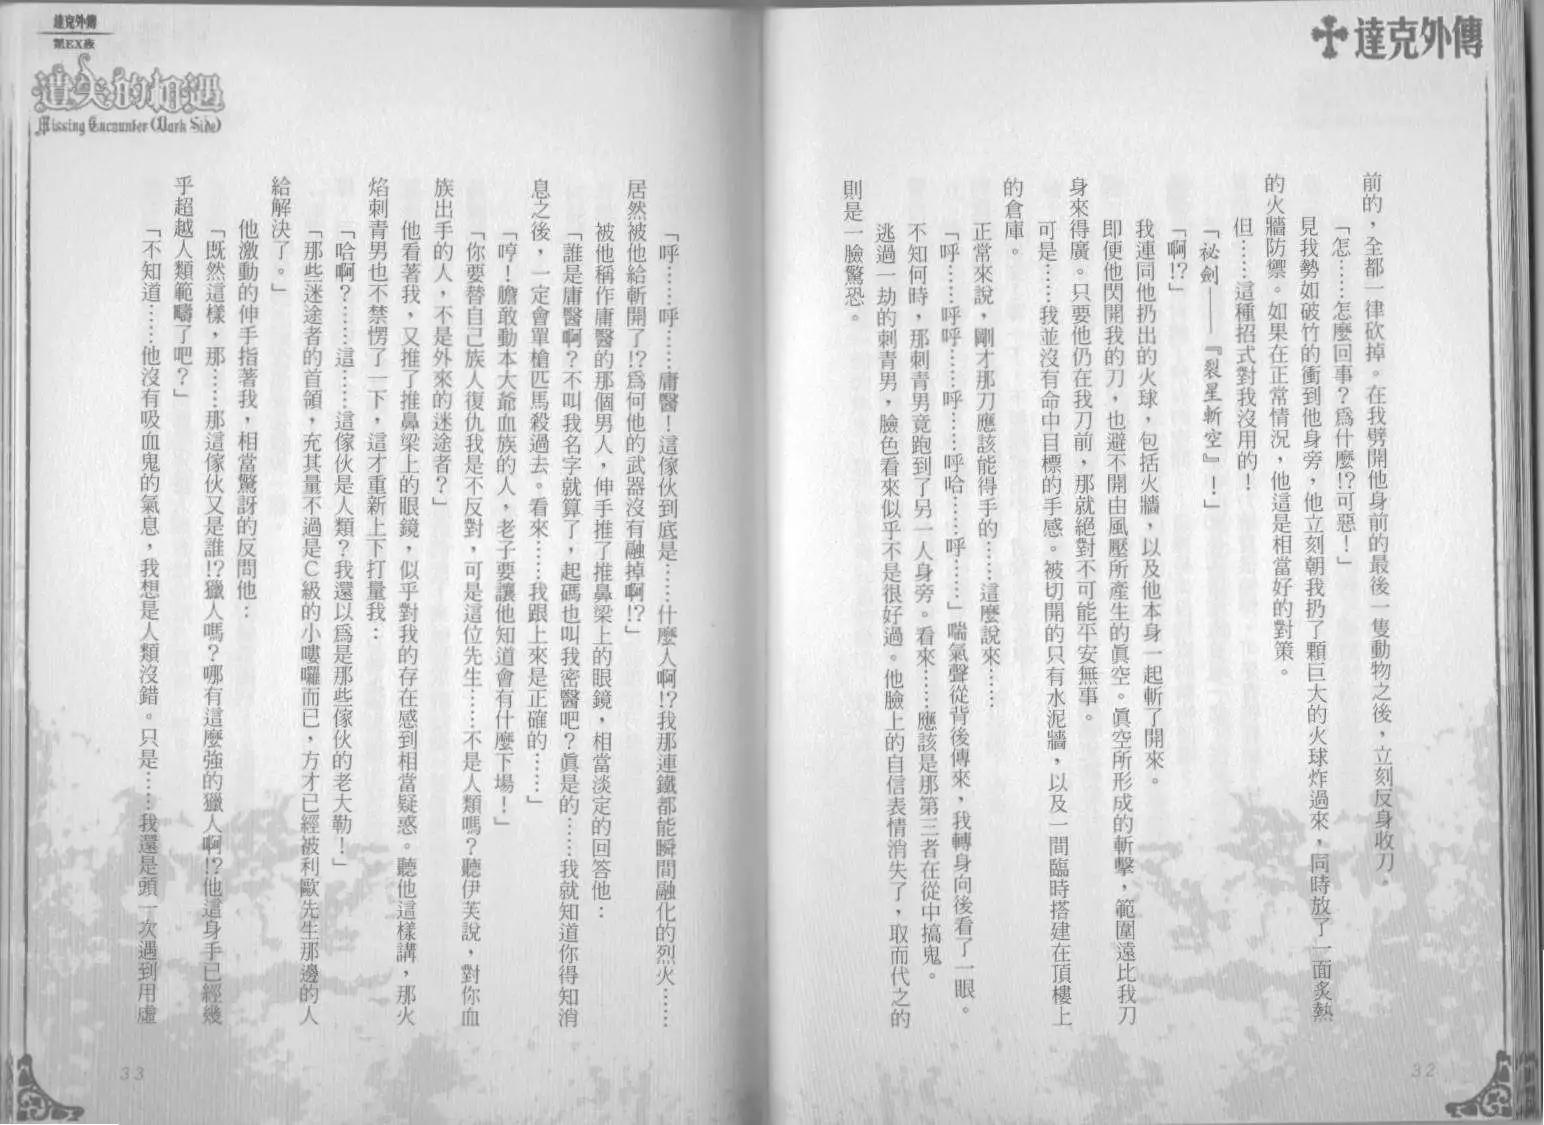 達克外傳
前的，全都一律砍掉。在我劈開他身前的最後一隻動物之後，立刻反身收刀。
「怎……怎麼回事？為什麼!?可惡！」
見我勢如破竹的衝到他身旁，他立刻朝我扔了顆巨大的火球炸過來，同時放了一面炙熱
的火牆防禦。如果在正常情況，他這是相當好的對策。
但……這種招式對我沒用的！
「祕劍——『裂星斬空』！」
「啊!?」
我連同他扔出的火球，包括火牆，以及他本身一起斬了開來。
即便他閃開我的刀，也避不開由風壓所產生的真空。真空所形成的斬擊，範圍遠比我刀
身來得廣。只要他仍在我刀前，那就絕對不可能平安無事。
可是……我並沒有命中目標的手感。被切開的只有水泥牆，以及一間臨時搭建在頂樓上
的倉庫。
正常來說，剛才那刀應該能得手的……這麼說來……
「呼……呼呼……呼……呼哈……呼……」喘氣聲從背後傳來，我轉身向後看了一眼。
不知何時，那刺青男竟跑到了另一人身旁。看來……應該是那第三者在從中搞鬼。
逃過一劫的刺青男，臉色看來似乎不是很好過。他臉上的自信表情消失了，取而代之的
則是一臉驚恐。
32
達克外傳
第EX夜
遺失的相遇
Missing Encounter (Dark Side)
「呼……呼……庸醫！這傢伙到底是……什麼人啊!?我那連鐵都能瞬間融化的烈火……
居然被他給斬開了!?為何他的武器沒有融掉啊!?」
被他稱作庸醫的那個男人，伸手推了推鼻梁上的眼鏡，相當淡定的回答他：
「誰是庸醫啊？不叫我名字就算了，起碼也叫我密醫吧？真是的……我就知道你得知消
息之後，一定會單槍匹馬殺過去。看來……我跟上來是正確的……」
「哼！膽敢動本大爺血族的人，老子要讓他知道會有什麼下場！」
「你要替自己族人復仇我是不反對，可是這位先生……不是人類嗎？聽伊芙說，對你血
族出手的人，不是外來的迷途者？」
他看著我，又推了推鼻梁上的眼鏡，似乎對我的存在感到相當疑惑。聽他這樣講，那火
焰刺青男也不禁愣了一下，這才重新上下打量我：
「哈啊？……這……這傢伙是人類？我還以為是那些傢伙的老大勒！」
「那些迷途者的首領，充其量不過是Ｃ級的小嘍囉而已，方才已經被利歐先生那邊的人
給解決了。」
他激動的伸手指著我，相當驚訝的反問他：
「既然這樣，那……那這傢伙又是誰!?獵人嗎？哪有這麼強的獵人啊!?他這身手已經幾
乎超越人類範疇了吧？」
「不知道……他沒有吸血鬼的氣息，我想是人類沒錯。只是……我還是頭一次遇到用虛
33